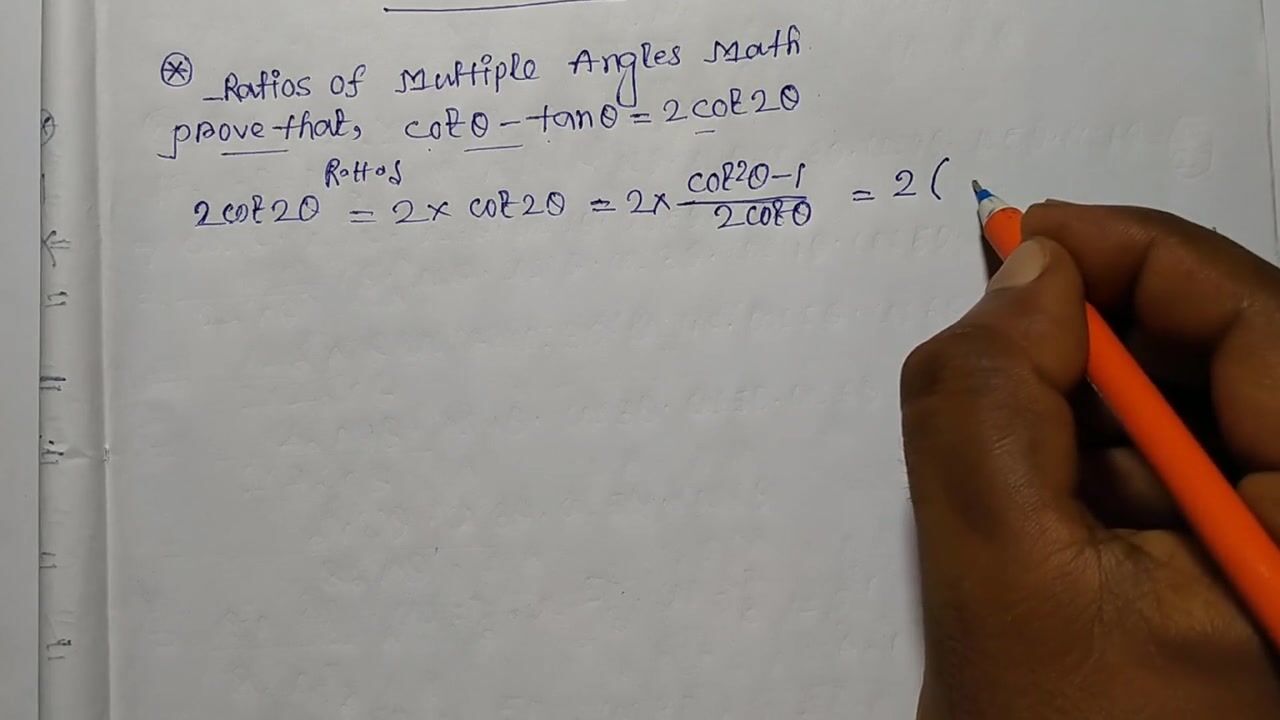 ⊛ Ratios of Multiple Angles Math
prove that, cotθ - tanθ = 2cot2θ
Rattos
2cot2θ = 2× cot2θ = 2× \frac{cot²θ-1}{2cotθ} = 2(